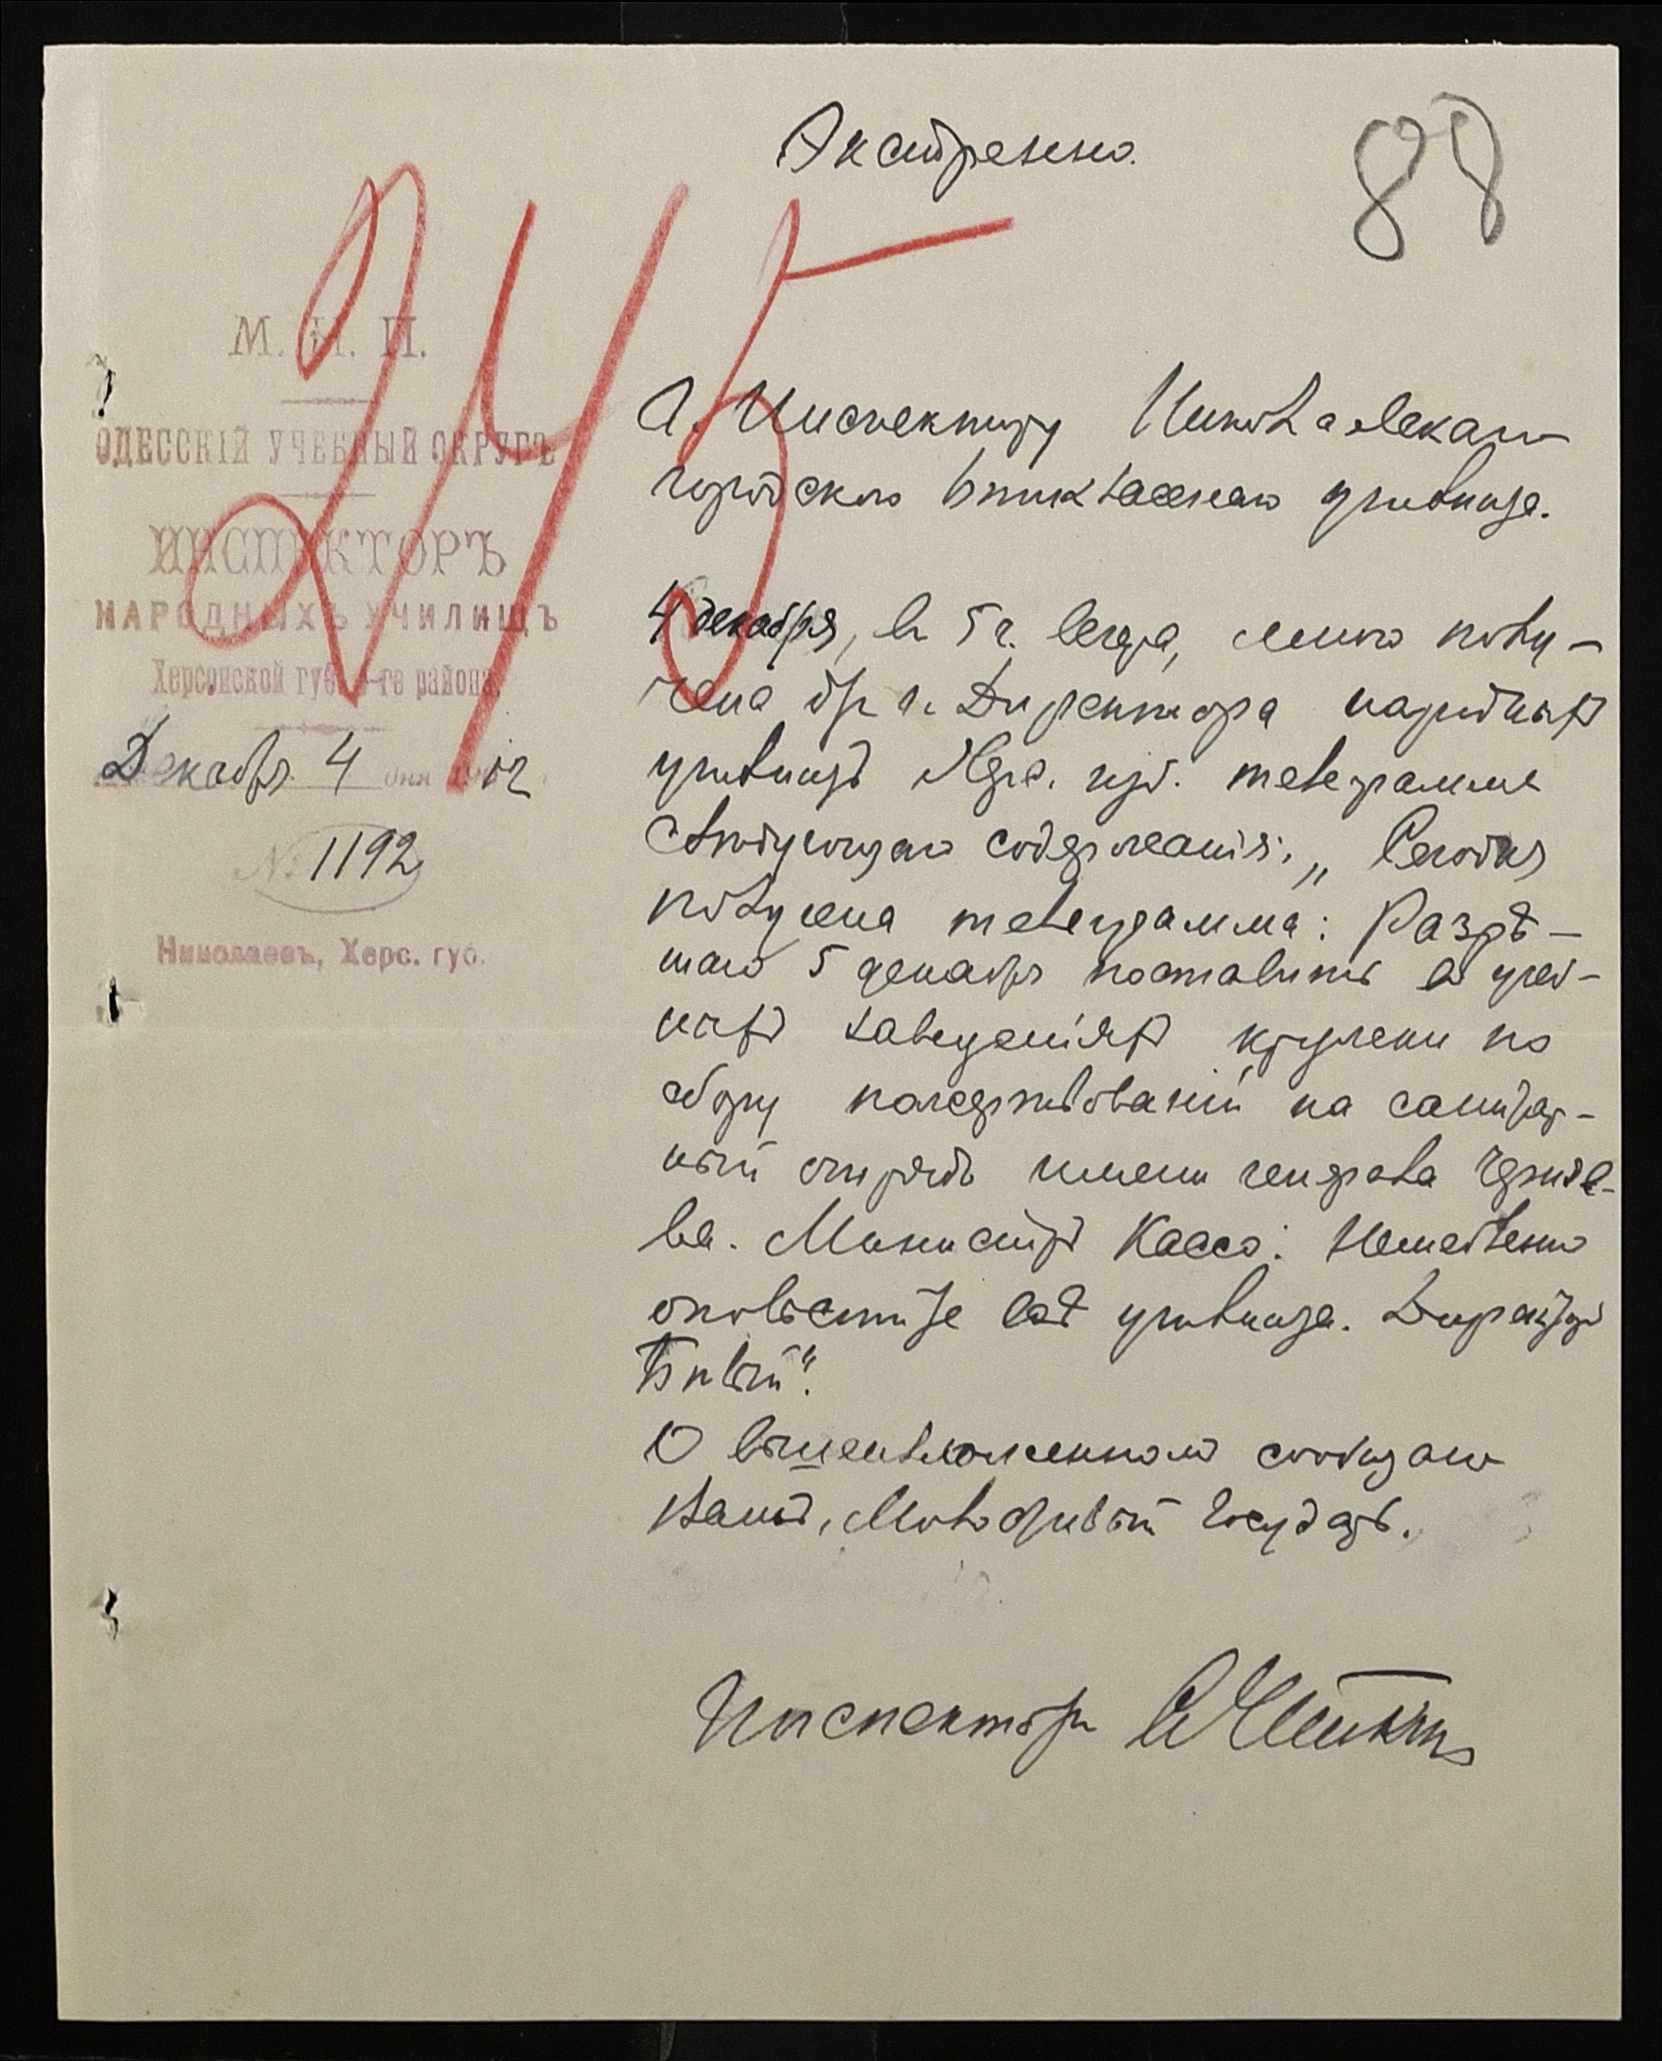 Экстренно.
88
245
М. Н. П.
ОДЕССКІЙ УЧЕБНЫЙ ОКРУГЪ
ИНСПЕКТОРЪ
НАРОДНЫХЪ УЧИЛИЩЪ
Херсонской губ. -го района.
Декабря 4 дня 1912
№ 1192
Николаевъ, Херс. губ.
Г. Инспектору Николаевскаго
городского 6тиклассного училища.
4 декабря, в 5 ч. вечера, мною полу-
чена от г. Директора народныхъ
училищъ Херс. губ. телеграмма
следующаго содержанія: „Сегодня
получена телеграмма: Разрѣ-
шаю 5 декабря поставить въ учеб-
ныхъ заведеніяхъ кружки по
сбору пожертвованій на санитар-
ный отрядъ имени генерала Черняе-
ва. Министръ Кассо. Немедленно
оповѣстите всѣ училища. Директоръ
О вышеизложенномъ сообщаю
Вамъ, Милостивый Государь.
Инспекторъ